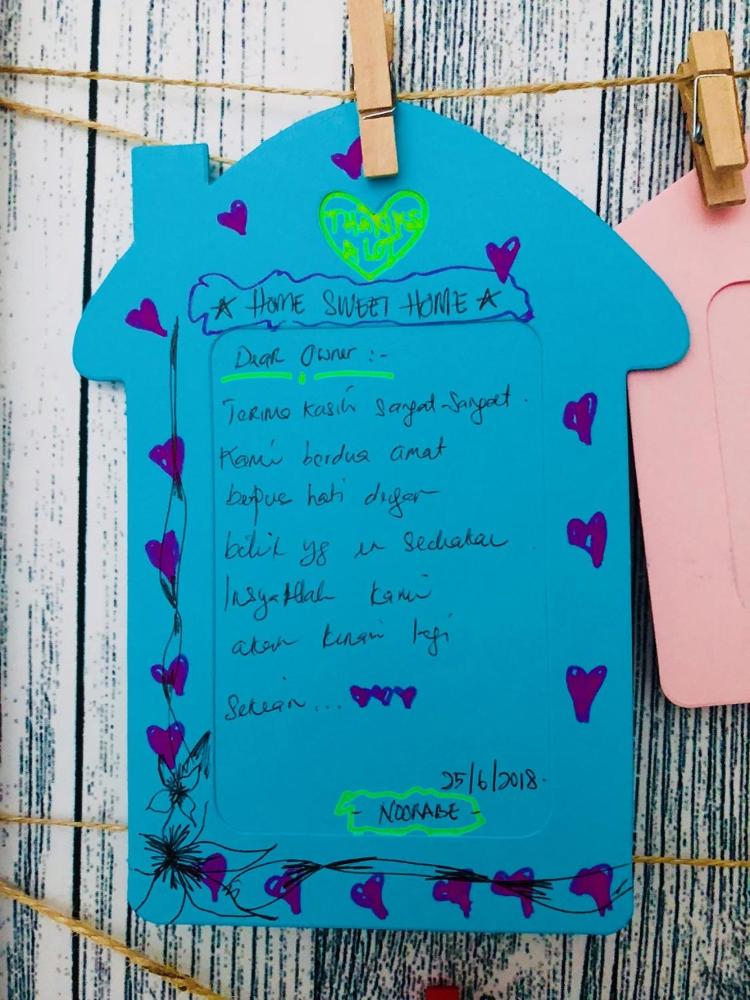 THANKS
A LOT
☆ HOME SWEET HOME ☆
Dear Owner :-
Terima kasih sangat-sangat.
Kami berdua amat
berpuas hati dengan
bilik yg di sediakan.
InsyaAllah kami
akan kunai lagi
Sekian...
25/6/2018.
- NOORABE -